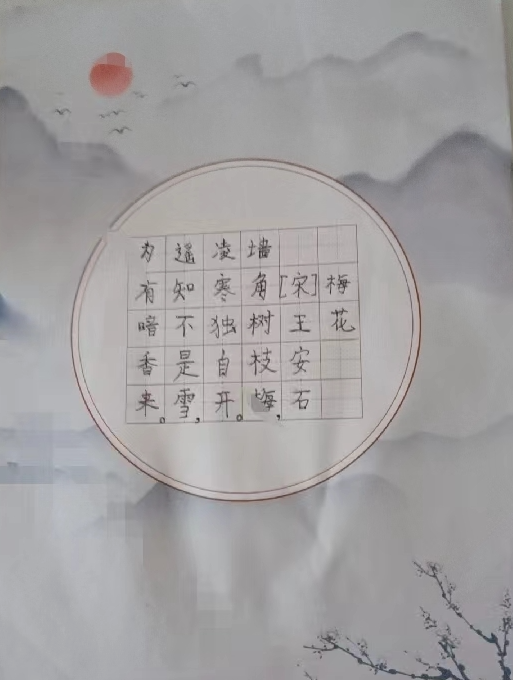 梅花
[宋]王安石
墙角树枝，
凌寒独自开。
遥知不是雪，
为有暗香来。